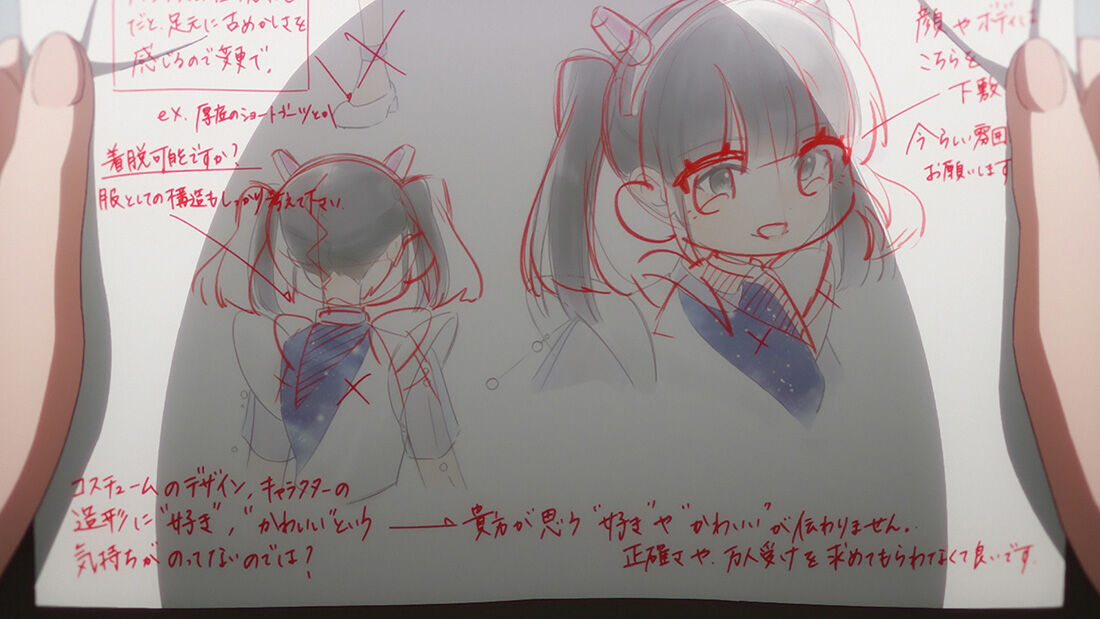 だと、足元に古めかしさを
感じるので変更で。
ex. 厚底のショートブーツとか
着脱可能ですか?
服としての構造もしっかり考えて下さい.
顔やボディは
こちらを
下敷
今らしい雰囲
お願いします
コスチュームのデザイン、キャラクターの
造形に"好き"、"かわいい"という
気持ちがのってないのでは?
貴方が思う"好き"や"かわいい"が伝わりません。
正確さや、万人受けを求めてもらわなくて良いです.